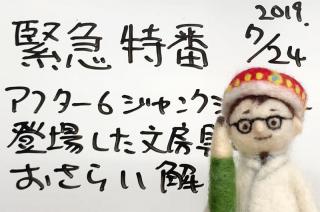 2019.
緊急特番 7/24
アフター6ジャンク
登場した文房
おさらい解